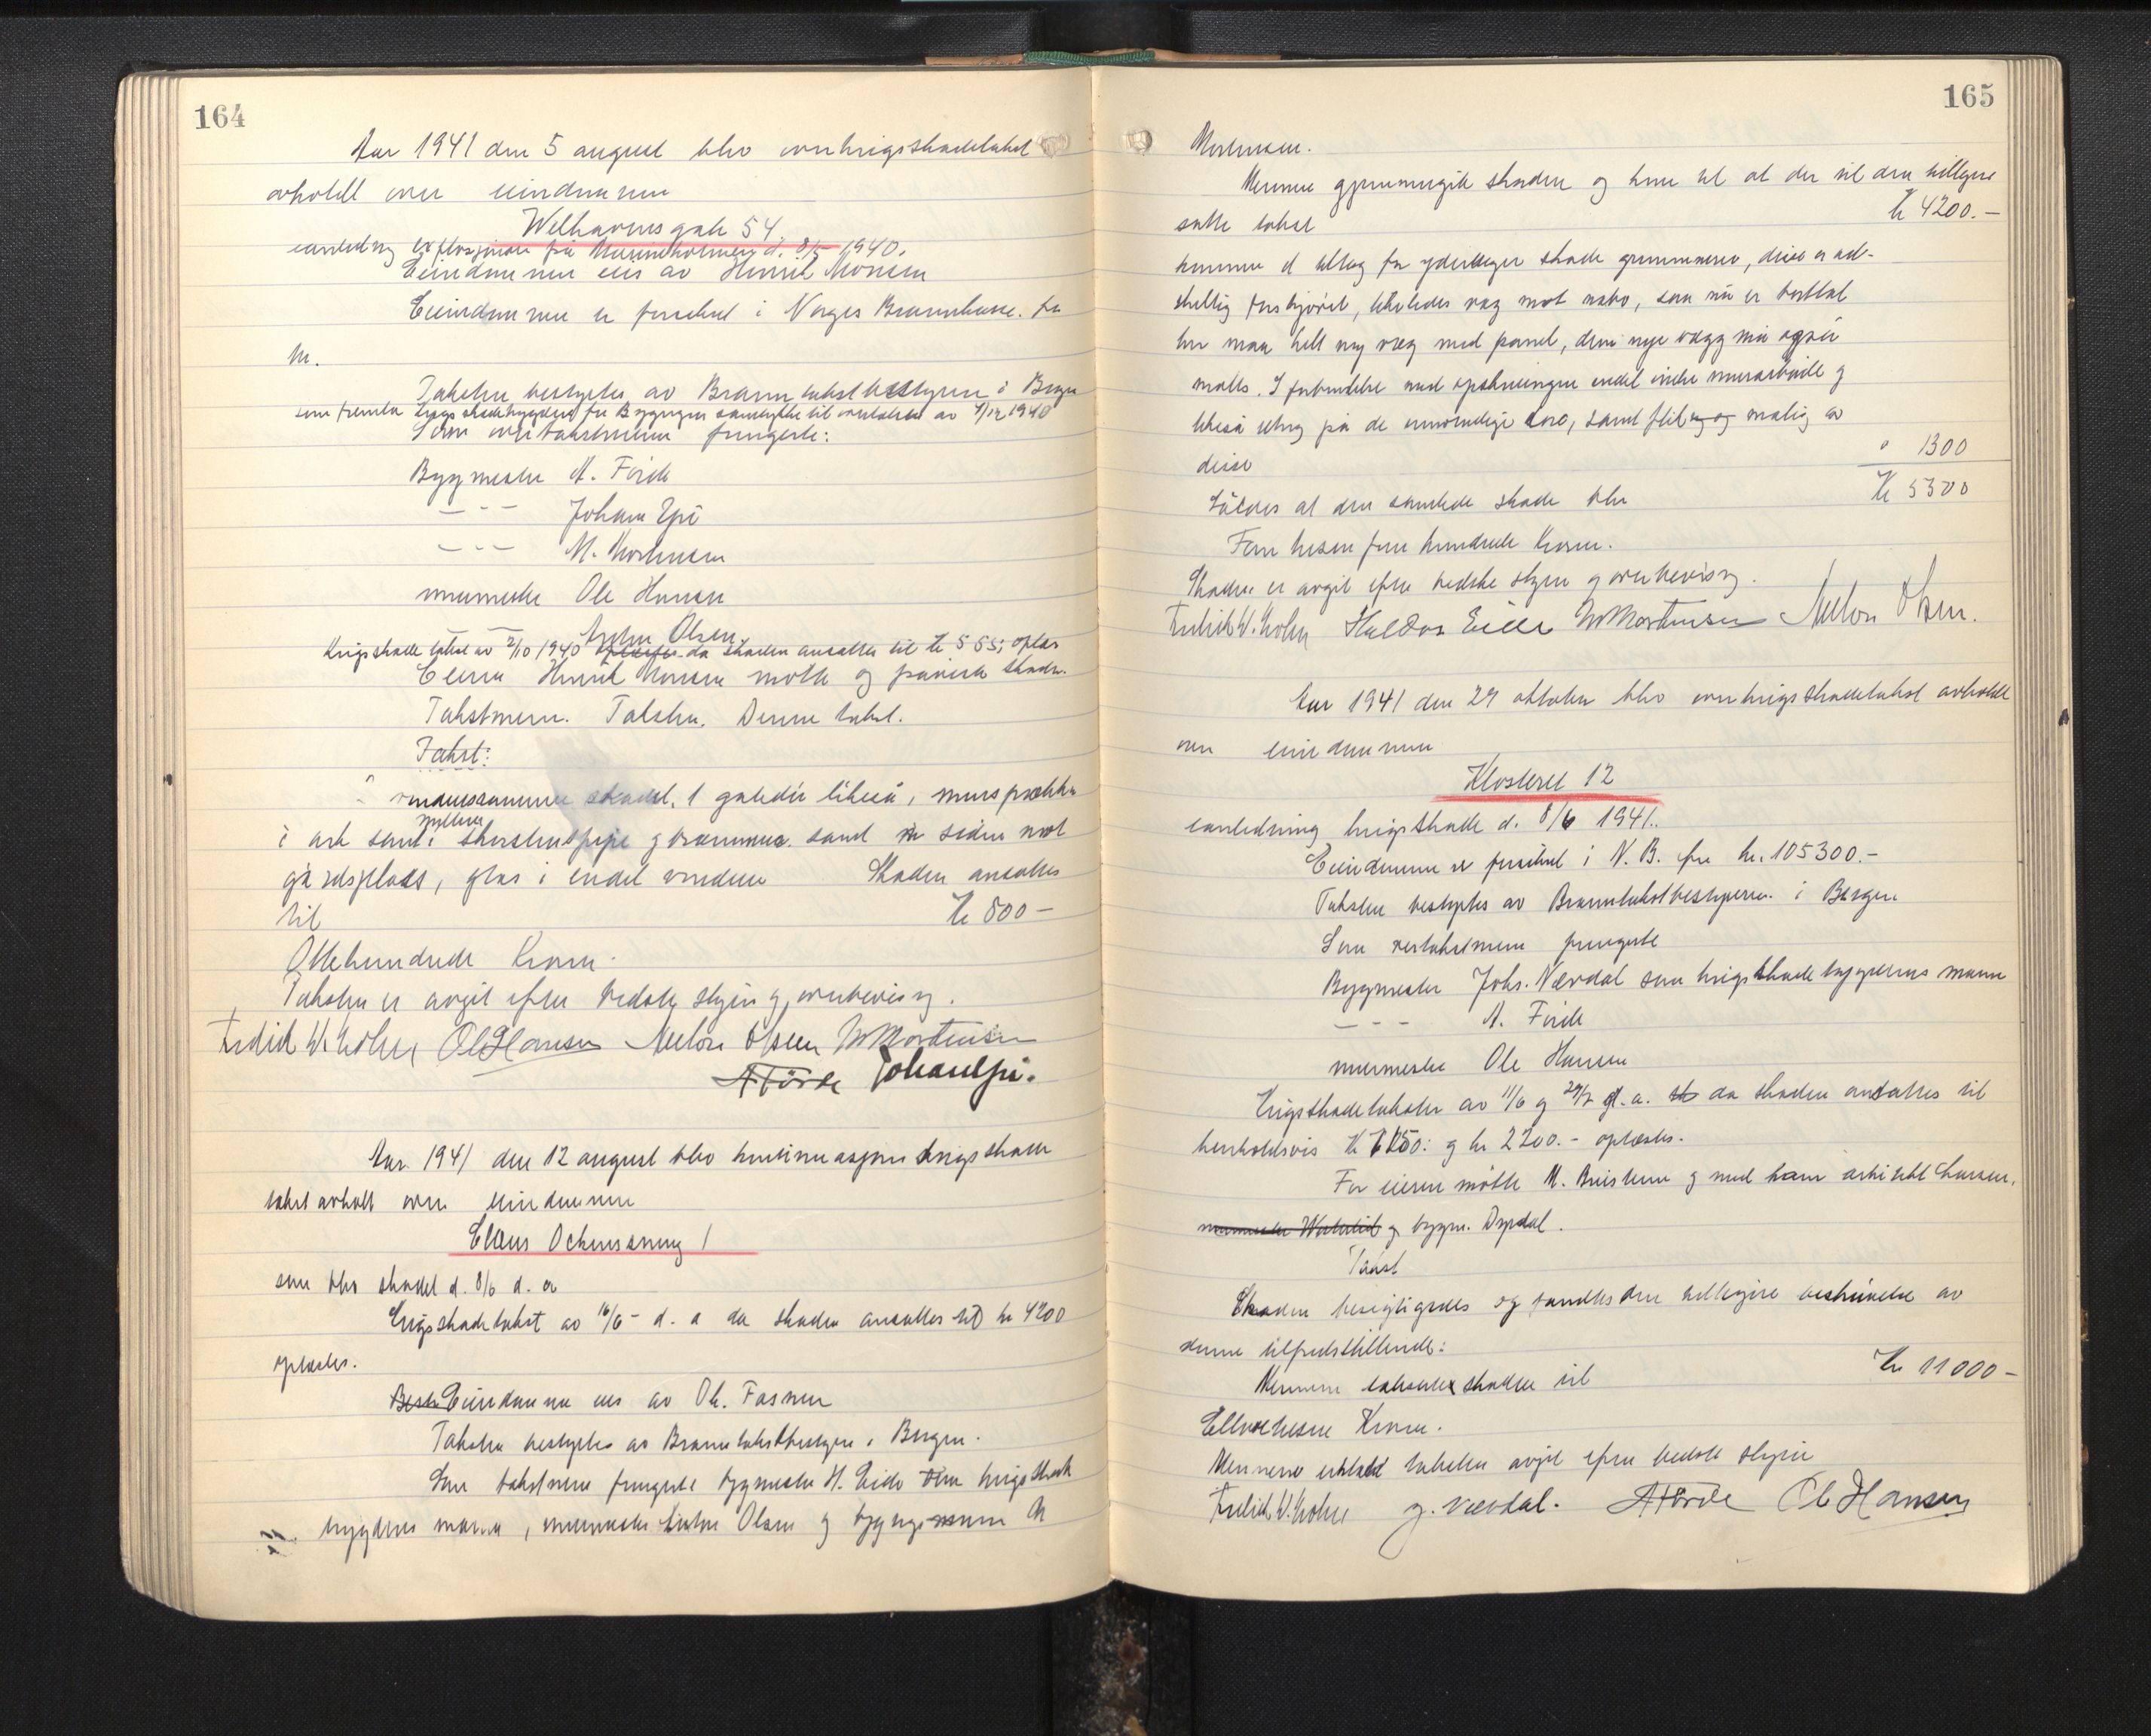 164
Aar 1941 den 5 august blev overkrigsskadetakst
avholdt over eiendommen
Welhavensgate 54.
anledning explosjonen på Marineholmen d. 8/5 1940.
Eiendommen eies av Henrik Monsen
Eiendommen er forsikret i Norges Brannkasse for
kr.
Taksten bestyrtes av Branntakstbestyreren i Bergen
som fremla krigsskadetrygden for Bygninger samtykke til overtakst av 4/12 1940
Som overtakstmenn fungerte:
Byggmester A. Förde
--- Johan Epi
--- M. Mortensen
murmester Ole Hansen
— Anton Olsen.
Krigsskadetakst av 2/10 1940 da skaden ansattes til kr 555; oplæs
Eieren Henrik Monsen mötte og påviste skaden.
Takstmenn. Taksten. Denne takst.
Takst:
vindusrammer skadet, 1 gatedör likeså, mursprækker
i ark samt i skorstenspipe g brannmur samt in siden mot
gårdsplass, glas i endel vinduer Skaden ansattes
til kr 800-
Ottehundrede Kroner.
Taksten er avgit efter bedste skjön g overbevisng.
Fredrik W. Kohn Ole Hansen Anton Olsen M Mortensen
A Förde Johan Epi.
Aar 1941 den 12 august blev kontinuasjons krigsskade
takst avholt over eiendommen
Claus Ockensesmug 1
som blev skadet d. 8/6 d. a
Krigsskadetakst av 16/6 - d. a da skaden ansattes til kr 4200
oplæstes.
Eiendommen eies av Ole. Fasmer
Taksten bestyrtes av Branntakstbestyrer i Bergen.
Som takstmenn fungerte byggmester H. Eide som krigsskade
trygdens mann, murmester Anton Olsen g bygningsmann M
165
Mortensen.
Mennene gjennemgik skaden og kom til at der til den tidligere
satte takst kr 4200.-
kommer et tillæg for yderligere skade grunnmurer, disse er ad-
skillig forskjövet, likeledes væg mot nabo, som nu er bortfalt
her maa helt ny væg med panel, denne nye vægg må også
males. I forbindelse med opstivningen endel indre murarbeide g
likeså utlæg på de nuværende , samt flikng og maling av
disse " 1300
Således at den samlede skade blir kr 5500
Fem tusen fem hundrede kroner.
Skaden er avgit efter bedste skjön g overbevisng.
Fredrik W. Kohn Haldor Eide M Mortensen Anton Olsen.
Aar 1941 den 29 oktober blev overkrigsskadetakst avholdt
over eiendommen
Klosteret 12
anledning krigsskade d. 8/6 1941.
Eiendommen er forsikret i N. B. for kr. 105300.-
Taksten bestyrtes av Branntakstbestyreren i Bergen
Som overtakstmenn fungerte
Byggmester Johs. Nævdal som krigsskadetrygdens mann
--- A. Förde
murmester Ole Hansen
Krigsskadetakster av 11/6 g 29/7 d. a. da skaden ansattes til
henholdsvis kr 7250: g kr 2200.- oplæstes.
For eieren mötte M. Breistein g med ham arkitekt Larsen,
g byggm. Dyrdal.
Takst
Skaden besigtigedes og fandtes den tidligere beskrivelse av
denne tilfredsstillende:
Mennene takserte skaden til kr 11000-
Ellevetusen Kroner.
Mennene erklærte taksten avgit efter bedste skjön
Fredrik W. Kohn J. Nævdal. A Förde Ole Hansen